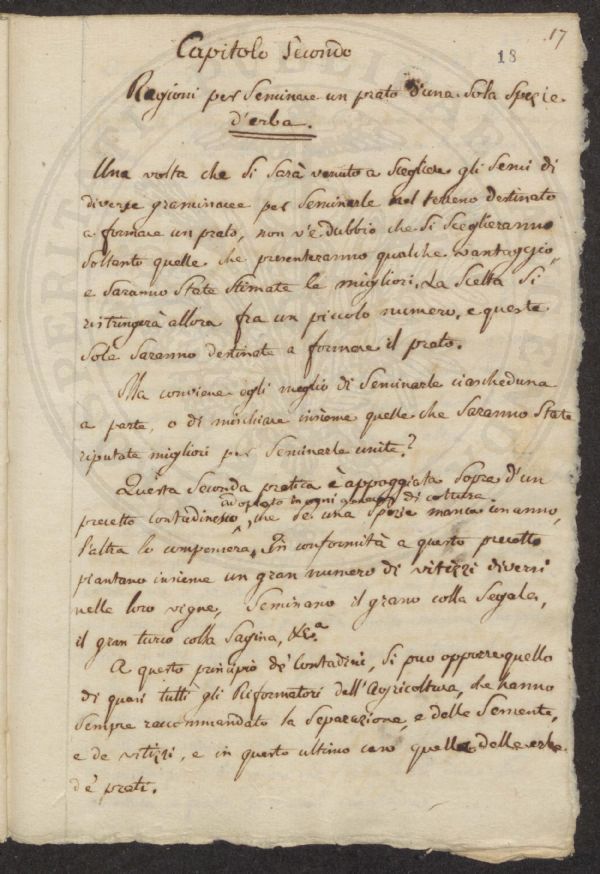 17
18
Capitolo Secondo
Ragioni per Seminare un prato d'una Sola Spezie
d'erba.
Una volta che Si Sarà venuto a Scegliere gli Semi di
diverse graminacee per Seminarle nel terreno destinato
a formare un prato, non v'è dubbio che Si Sceglieranno
Soltanto quelle che presenteranno qualche vantaggio
e Saranno State Stimate le migliori. La Scelta Si
ristringerà allora fra un piccolo numero, e queste
Sole Saranno destinate a formare il prato.
Ma conviene egli meglio di Seminarle ciascheduna
a parte, o di mischiare insieme quelle che Saranno State
riputate migliori per Seminarle unite?
Questa Seconda pratica è appoggiata Sopra d'un
adoptato in ogni di coltura
precetto contadinesco, che Se una Spezie manca un anno,
l'altra lo compenserà. In conformità a questo precetto
piantano insieme un gran numero di vitizzi diversi
nelle loro vigne, Seminano il grano colla Segale,
il gran turco colla Sagina, &c.a
A questo principio de' Contadini, Si può opporre quello
di quasi tutti gli Riformatori dell'Agricoltura, che hanno
Sempre raccommandato la Separazione, e delle Semente,
e de vitizzi, e in questo ultimo caso quella delle erbe
de' prati.